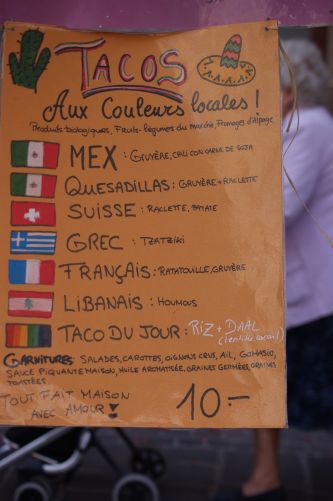 TACOS
AUX COULEURS LOCALES !
PRODUITS BIOLOGIQUES, FRUITS-LÉGUMES DU MARCHÉ, FROMAGES D'ALPAGE
MEX : GRUYÈRE, CHILI CON CARNE DE SOJA
QUESADILLAS : GRUYÈRE + RACLETTE
SUISSE : RACLETTE, PATATE
GREC : TZATZIKI
FRANÇAIS : RATATOUILLE, GRUYÈRE
LIBANAIS : HOUMOUS
TACO DU JOUR : RIZ + DAAL
(lentille corail)
GARNITURES : SALADES, CAROTTES, OIGNONS CRUS, AIL, GOMASIO,
SAUCE PIQUANTE MAISON, HUILE AROMATISÉE, GRAINES GERMÉES, GRAINES
TOASTÉES
TOUT FAIT MAISON
AVEC AMOUR !
10.-